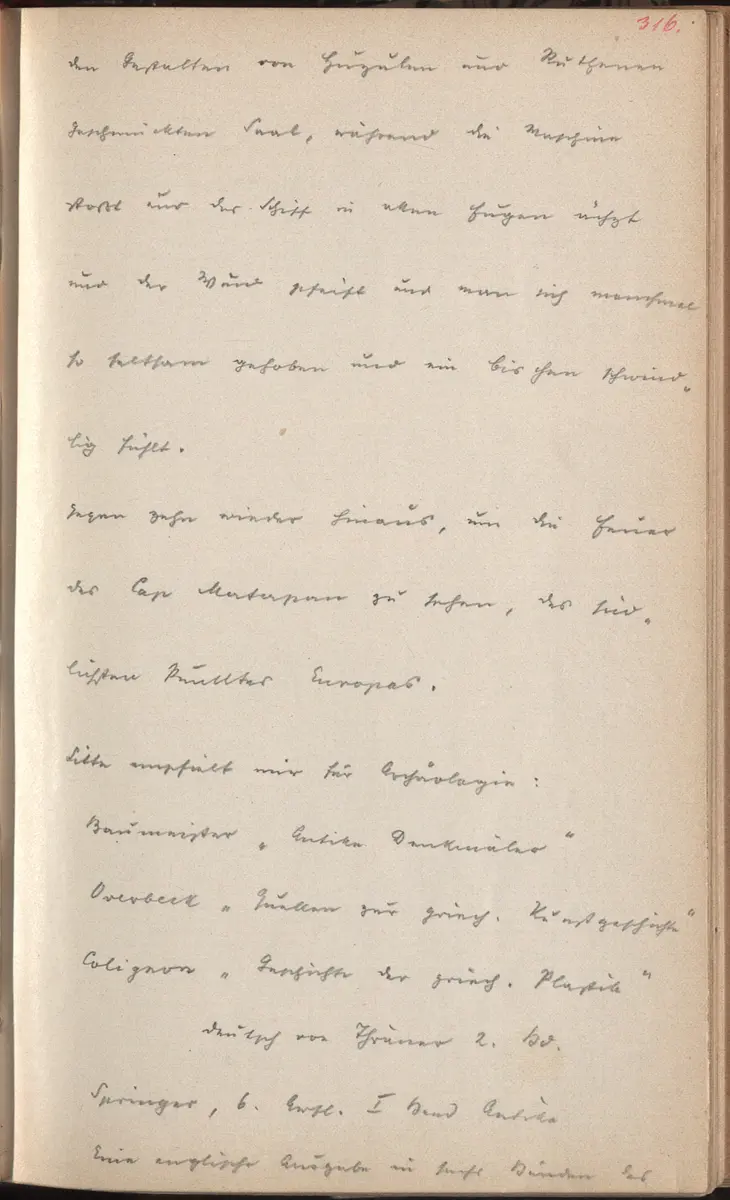 316.
den Gestalten von Huzulen und Ruthenen
geschmückten Saal, während die Maschine
stosst und das Schiff in allen Fugen ächzt
und der Wind pfeift und man sich manchmal
so seltsam gehoben und ein bischen schwind„
lig fühlt.
Gegen zehn wieder hinaus, um die Feuer
des Cap Matapan zu sehen, des süd„
lichsten Punktes Europas.
Sitte empfielt mir für Archäologie:
Baumeister „Antike Denkmäler“
Overbeck „Quellen zur griech. Kunstgeschichte“
Colignon „Geschichte der griech. Plastik“
deutsch von Thrämer 2. Bd.
Springer, 6. Aufl. I Band Antike
Eine englische Ausgabe in sechs Bänden des